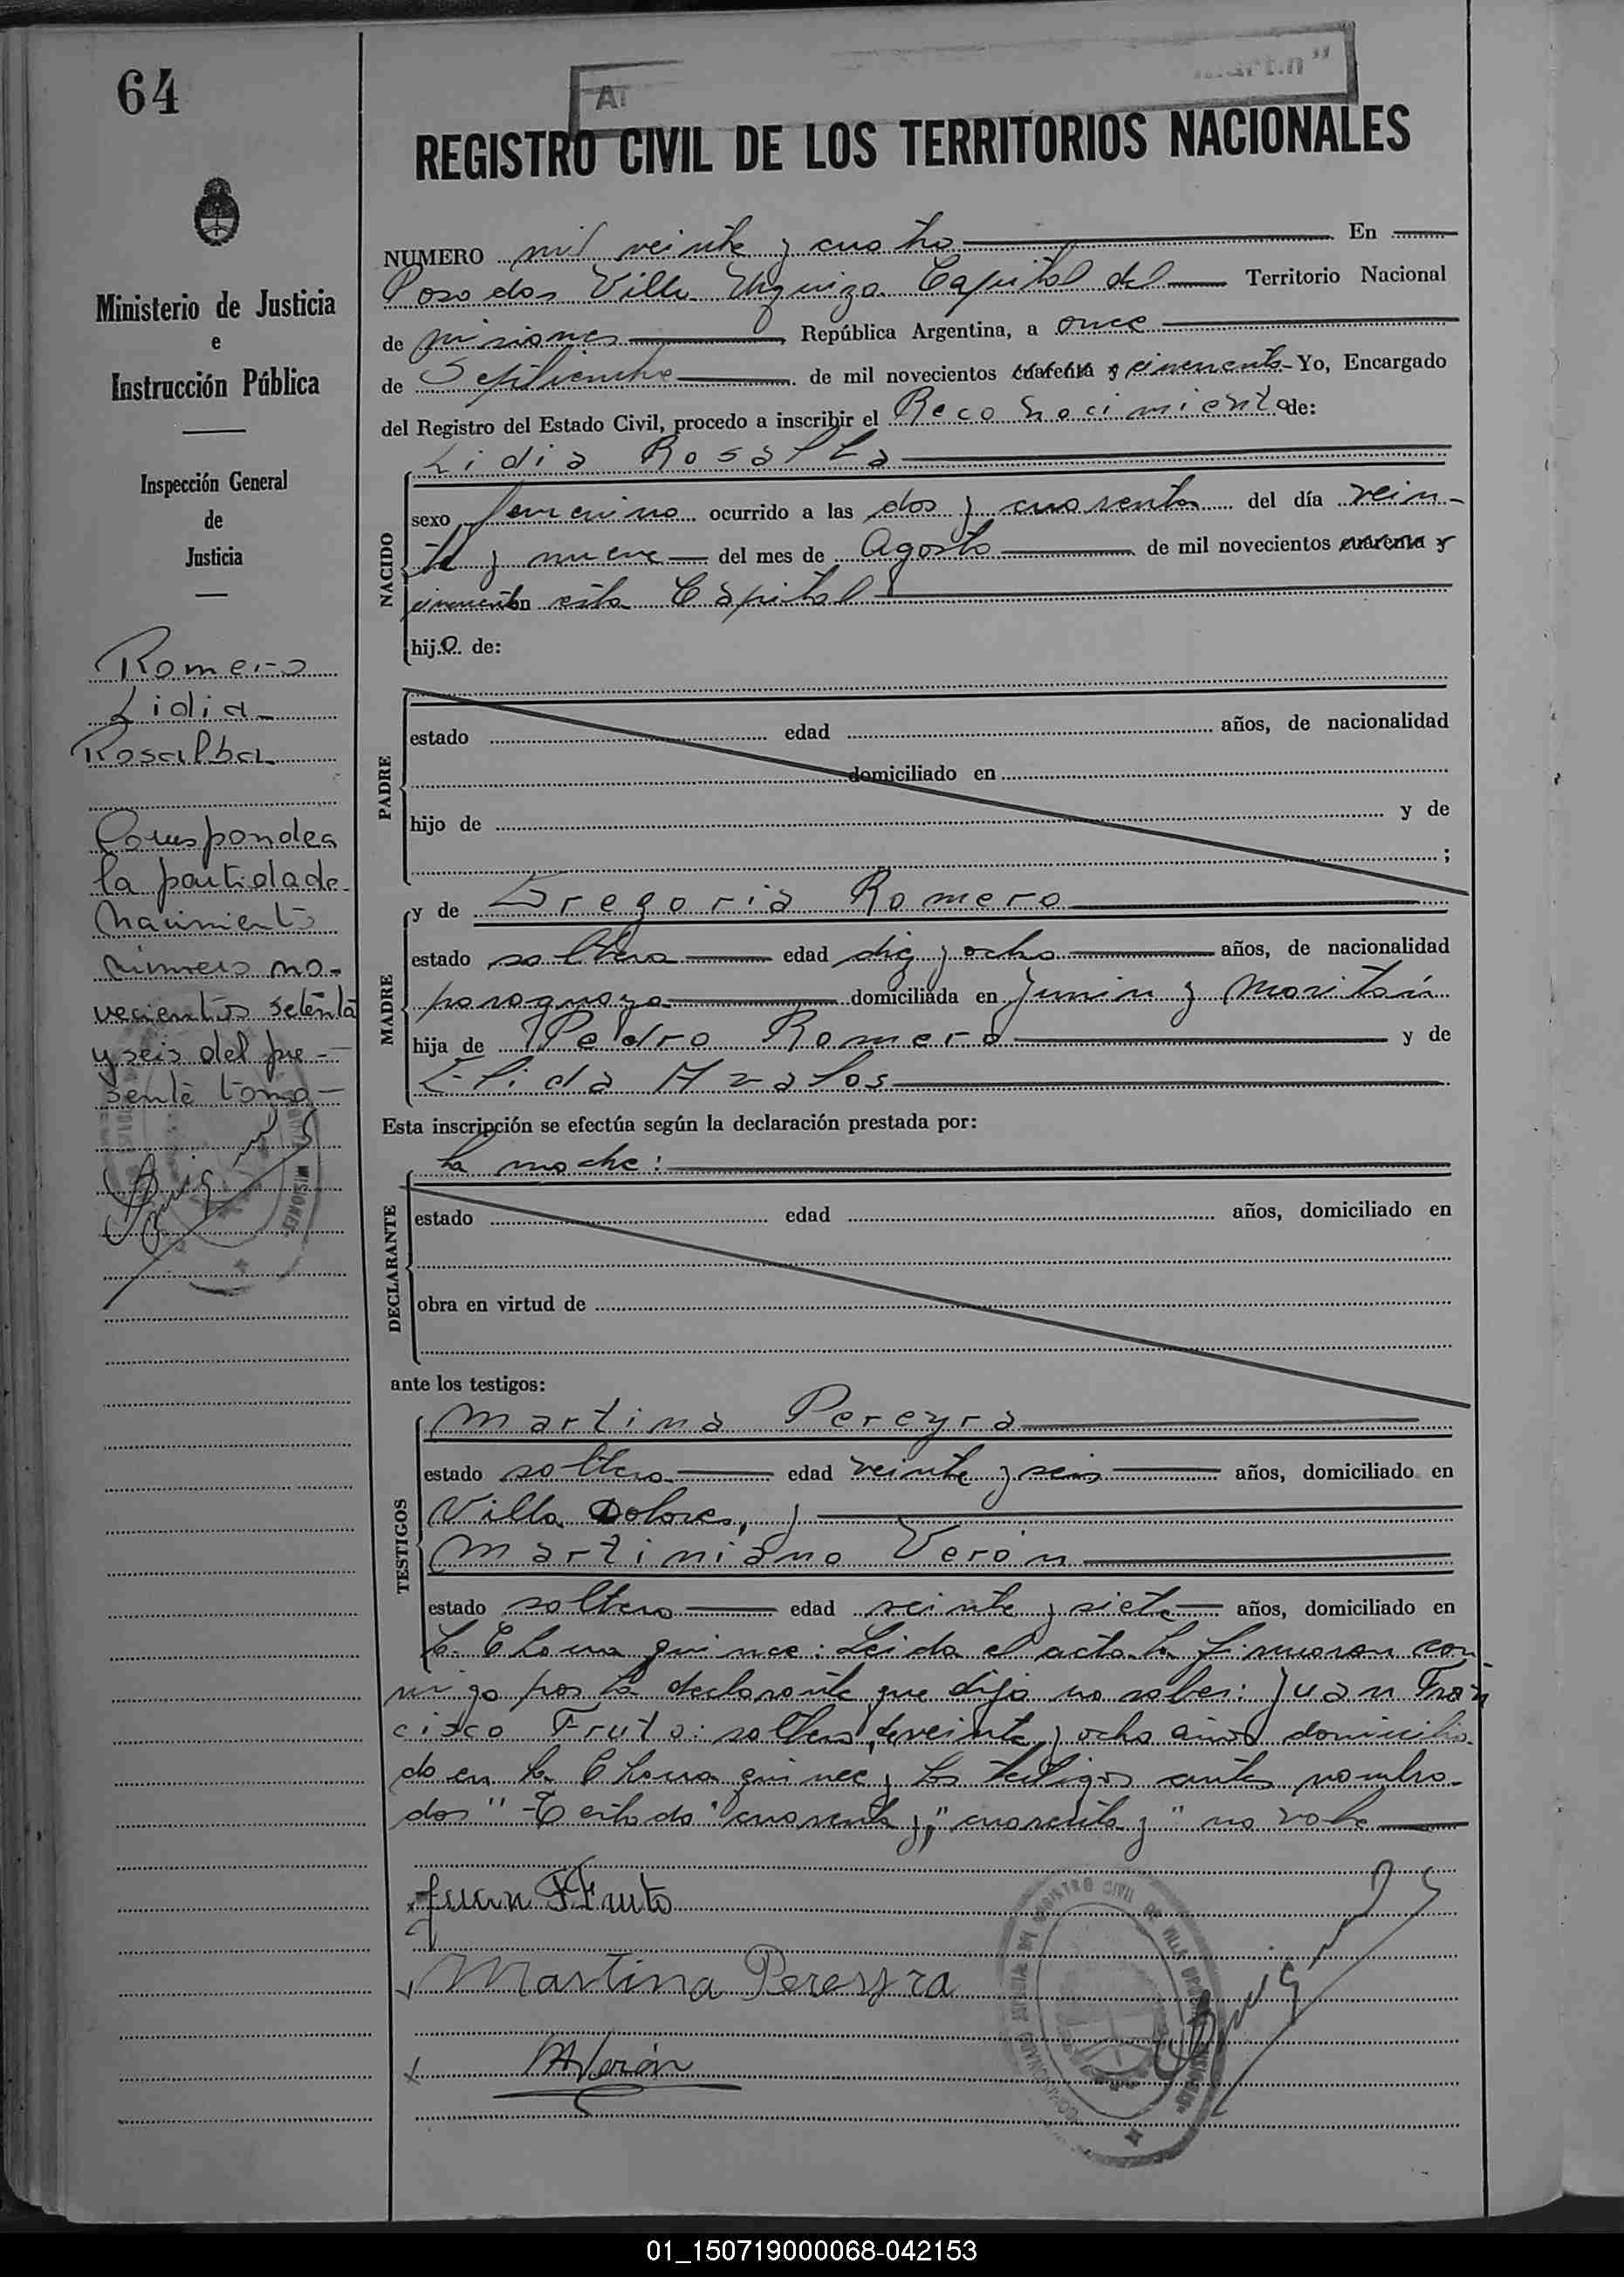 64
REGISTRO CIVIL DE LOS TERRITORIOS NACIONALES
Ministerio de Justicia
e
Instrucción Pública
Inspección General
de
Justicia
Romero
Lidia
Rosalba
Corresponde a
la partida de
Nacimiento
número no-
vecientos setenta
y seis del pre-
sente tomo
NUMERO mil veinte y cuatro En
Posadas Villa Urquiza Capital del Territorio Nacional
de Misiones República Argentina, a once
de Septiembre de mil novecientos cuarenta y cincuenta Yo, Encargado
del Registro del Estado Civil, procedo a inscribir el Reconocimiento de:
Lidia Rosalba
NACIDO
sexo femenino ocurrido a las dos y cuarenta del día vein-
te y nueve del mes de Agosto de mil novecientos cuarenta y
cincuenta en esta Capital
hija de:
PADRE
estado edad años, de nacionalidad
domiciliado en
hijo de y de
;
MADRE
y de Gregoria Romero
estado soltera edad diez y ocho años, de nacionalidad
paraguaya domiciliada en Junin y
hija de Pedro Romero y de
Elida Avalos
Esta inscripción se efectúa según la declaración prestada por:
la madre:
DECLARANTE
estado edad años, domiciliado en
obra en virtud de
ante los testigos:
TESTIGOS
Martina Pereyra
estado soltera edad veinte y seis años, domiciliado en
Villa Dolores, y
Martiniano Veron
estado soltero edad veinte y siete años, domiciliado en
la Chacra quince: Leida el acta la firmaron con-
migo por la declarante que dijo no saber: Juan Fran
cisco Fruto: soltero, de veinte y ocho años domicilia-
do en la Chacra quince y los testigos antes nombra-
dos" -Testado "cuarenta y", "cuarenta y" no vale
Juan F Fruto
Martina Pereyra
MVerón
REGISTRO CIVIL DE VILLA URQUIZA
MISIONES
01_150719000068-042153